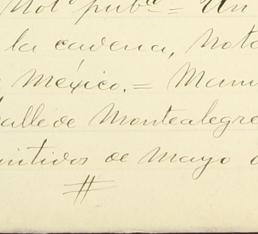 Not. pub.ca = Un
la cadena, Nota
México. = Manu
Valle de Montealegre
mitidos de Mayo
#